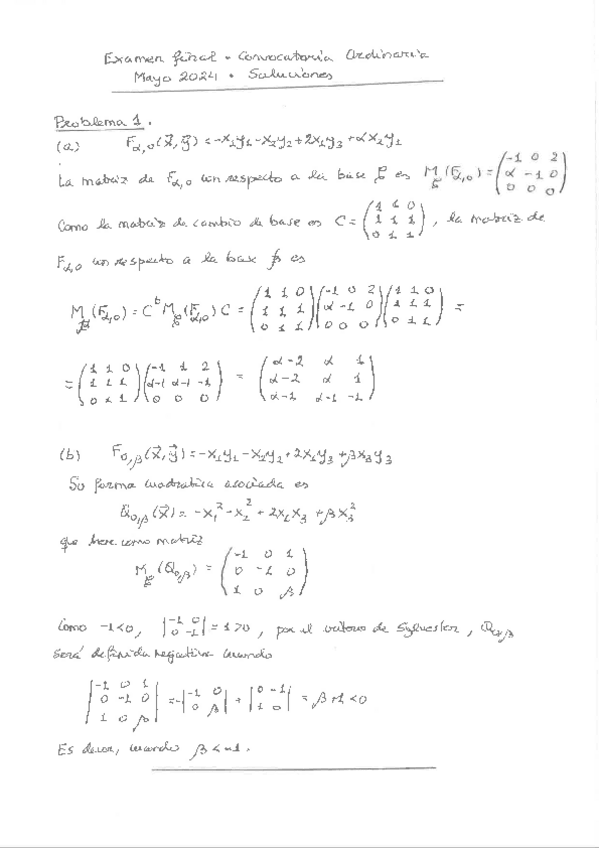 Examen final - Convocatoria Ordinaria
Mayo 2024 - Soluciones
Problema 1.
(a) F_{α,0}(x⃗, y⃗) = -x₁y₁ - x₂y₂ + 2x₁y₃ + αx₂y₁
La matriz de F_{α,0} con respecto a la base 𝓔 es M_𝓔(F_{α,0}) = (-1 0 2 / α -1 0 / 0 0 0)
Como la matriz de cambio de base es C = (1 1 0 / 1 1 1 / 0 1 1), la matriz de
F_{α,0} con respecto a la base 𝓑 es
M_𝓑(F_{α,0}) = C^t M_𝓔(F_{α,0}) C = (1 1 0 / 1 1 1 / 0 1 1)(-1 0 2 / α -1 0 / 0 0 0)(1 1 0 / 1 1 1 / 0 1 1) =
= (1 1 0 / 1 1 1 / 0 1 1)(-1 1 2 / α-1 α-1 -1 / 0 0 0) = (α-2 α 1 / α-2 α 1 / α-1 α-1 -1)
(b) F_{0,β}(x⃗, y⃗) = -x₁y₁ - x₂y₂ + 2x₁y₃ + βx₃y₃
Su forma cuadratica asociada es
Q_{0,β}(x⃗) = -x₁² - x₂² + 2x₁x₃ + βx₃²
que tiene como matriz
M_𝓔(Q_{0,β}) = (-1 0 1 / 0 -1 0 / 1 0 β)
Como -1<0, |-1 0 / 0 -1| = 1>0, por el criterio de Sylvester, Q_{0,β}
será definida negativa cuando
|-1 0 1 / 0 -1 0 / 1 0 β| = -|-1 0 / 0 β| + |0 -1 / 1 0| = β+1<0
Es decir, cuando β<-1.